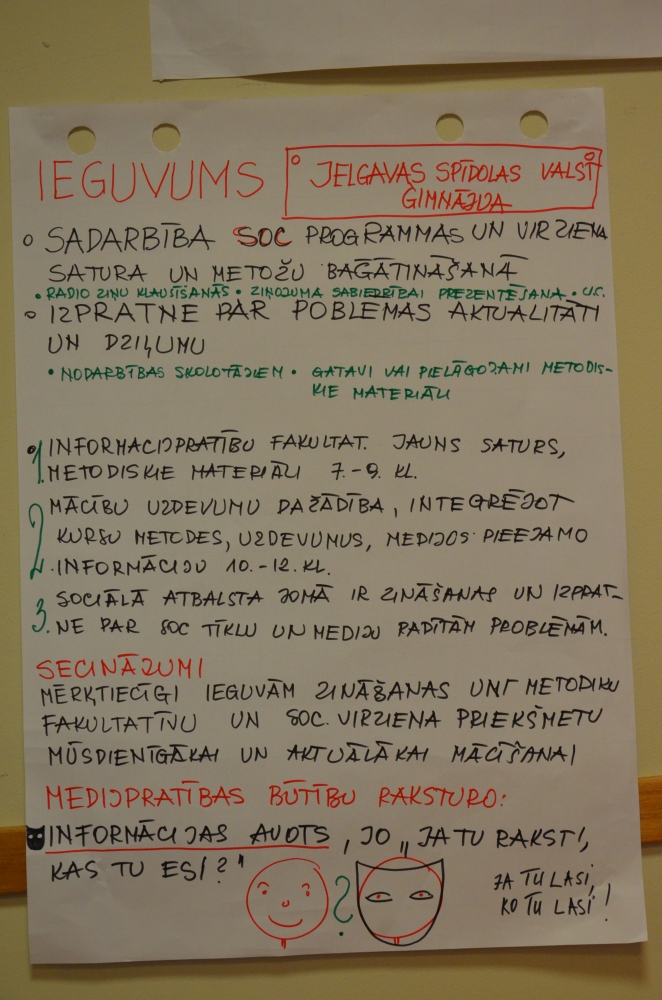 IEGUVUMS
JELGAVAS SPĪDOLAS VALST
ĢIMNĀZIJA
SADARBĪBA SOC PROGRAMMAS UN VIRZIENA
SATURA UN METOŽU BAGĀTINĀŠANĀ
• RADIO ZIŅU KLAUSĪŠANĀS • ZIŅOJUMA SABIEDRĪBAI PREZENTĒŠANA • U.C.
IZPRATNE PAR POBLEMAS AKTUALITĀTI
UN DZIĻUMU
• NODARBĪBAS SKOLOTĀJIEM • GATAVI VAI PIELĀGOJAMI METODIS-
KIE MATERIĀLI
1. INFORMĀCIJPRATĪBU FAKULTAT. JAUNS SATURS,
METODISKIE MATERIĀLI 7.-9. KL.
2. MĀCĪBU UZDEVUMU DAŽĀDĪBA, INTEGRĒJOT
KURSU METODES, UZDEVUMUS, MEDIJOS PIEEJAMO
INFORMĀCIJU 10.-12. KL.
3. SOCIĀLĀ ATBALSTA JOMĀ IR ZINĀŠANAS UN IZPRAT-
NE PAR SOC TĪKLU UN MEDIJU RADĪTĀM PROBLĒMĀM.
SECINĀJUMI
MĒRĶTIECĪGI IEGUVĀM ZINĀŠANAS UN METODIKU
FAKULTATĪVU UN SOC. VIRZIENA PRIEKŠMETU
MŪSDIENĪGĀKAI UN AKTUĀLĀKAI MĀCĪŠANAI
MEDIJPRATĪBAS BŪTĪBU RAKSTURO:
INFORMĀCIJAS AVOTS, JO „JA TU RAKSTI,
KAS TU ESI?"
?
JA TU LASI,
KO TU LASI!